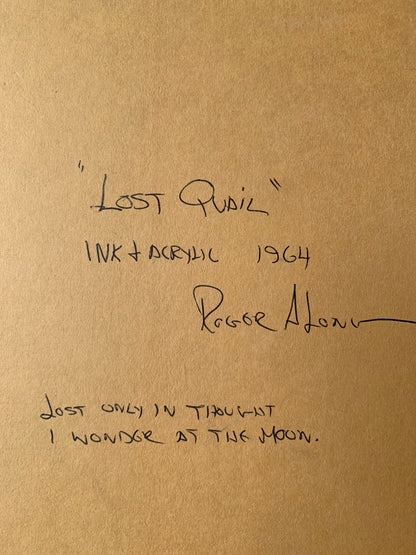 "Lost Quail"
INK + ACRYLIC 1964
Roger Along
LOST ONLY IN THOUGHT
I WONDER AT THE MOON.